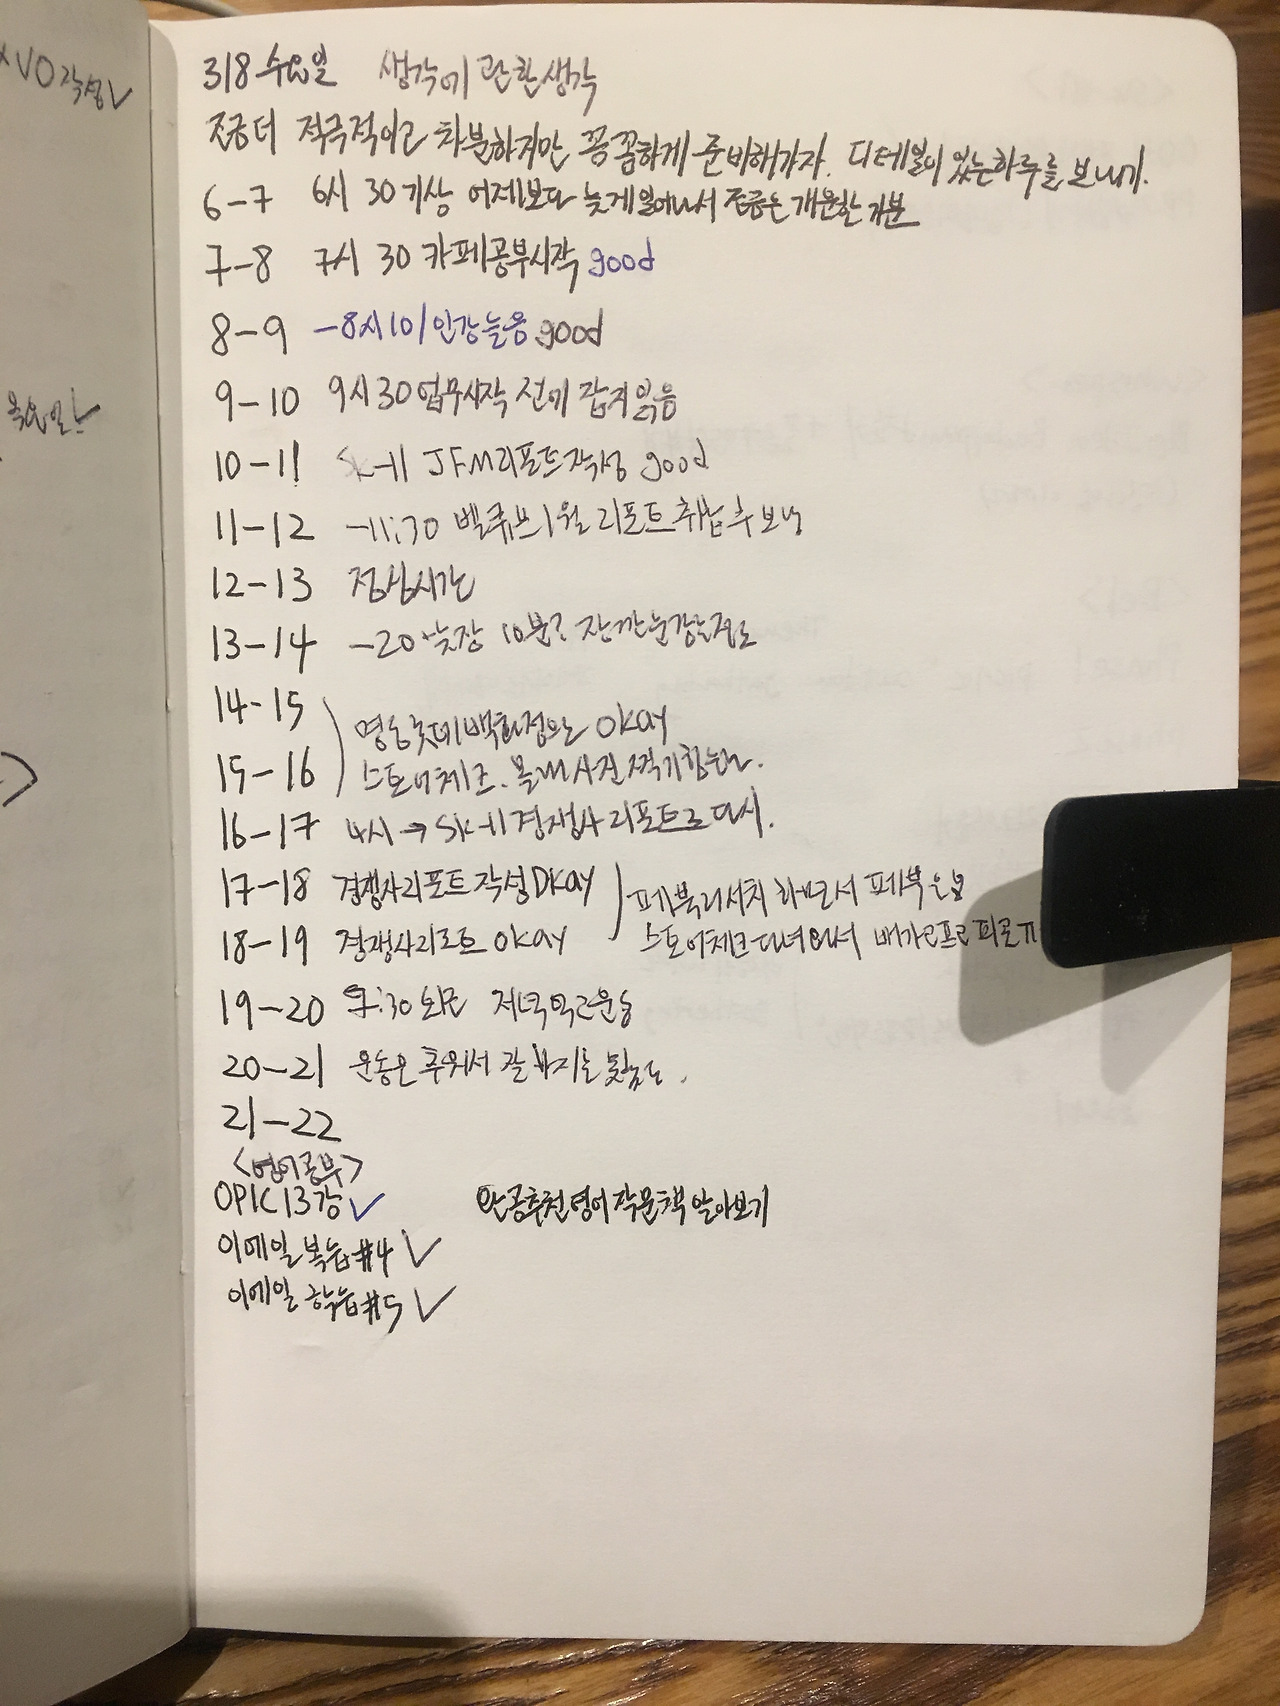 VO 작성✓
목요일
318 수요일 생각에 관한 생각
조금더 적극적이고 차분하지만 꼼꼼하게 준비해가자. 디테일이 있는 하루를 보내기.
6-7 6시 30 기상 어제보다 늦게 일어나서 조금은 개운한 기분
7-8 7시 30 카페공부시작 good
8-9 -8시10/인강들음 good
9-10 9시30 업무시작 전에 잡지 읽음
10-11 SK-II JFM리포트작성 good
11-12 -11:30 벨큐브 1월 리포트 취합 후 보냄
12-13 점심시간
13-14 -20 낮잠 10분? 잠깐 눈감는정도
14-15 명동롯데백화점으로 okay
15-16 스토어체크. 몰래 사진찍기 힘들다.
16-17 4시 → SK-II 경쟁사 리포트로 다시.
17-18 경쟁사리포트작성 Okay 페북리서치 하면서 페북
18-19 경쟁사리포트 okay 스토어체크 다녀와서
19-20 7:30 퇴근 저녁먹고운동
20-21 운동은 추워서 갈
21-22
<영어공부>
OPIC 13강 ✓ 알아보기
이메일 복습 #4 ✓
이메일 학습 #5 ✓